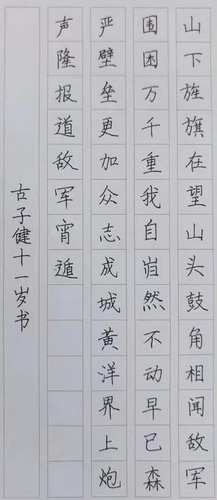 山下旌旗在望山头鼓角相闻敌军
围困万千重我自岿然不动早已森
严壁垒更加众志成城黄洋界上炮
声隆报道敌军宵遁
古子健十一岁书